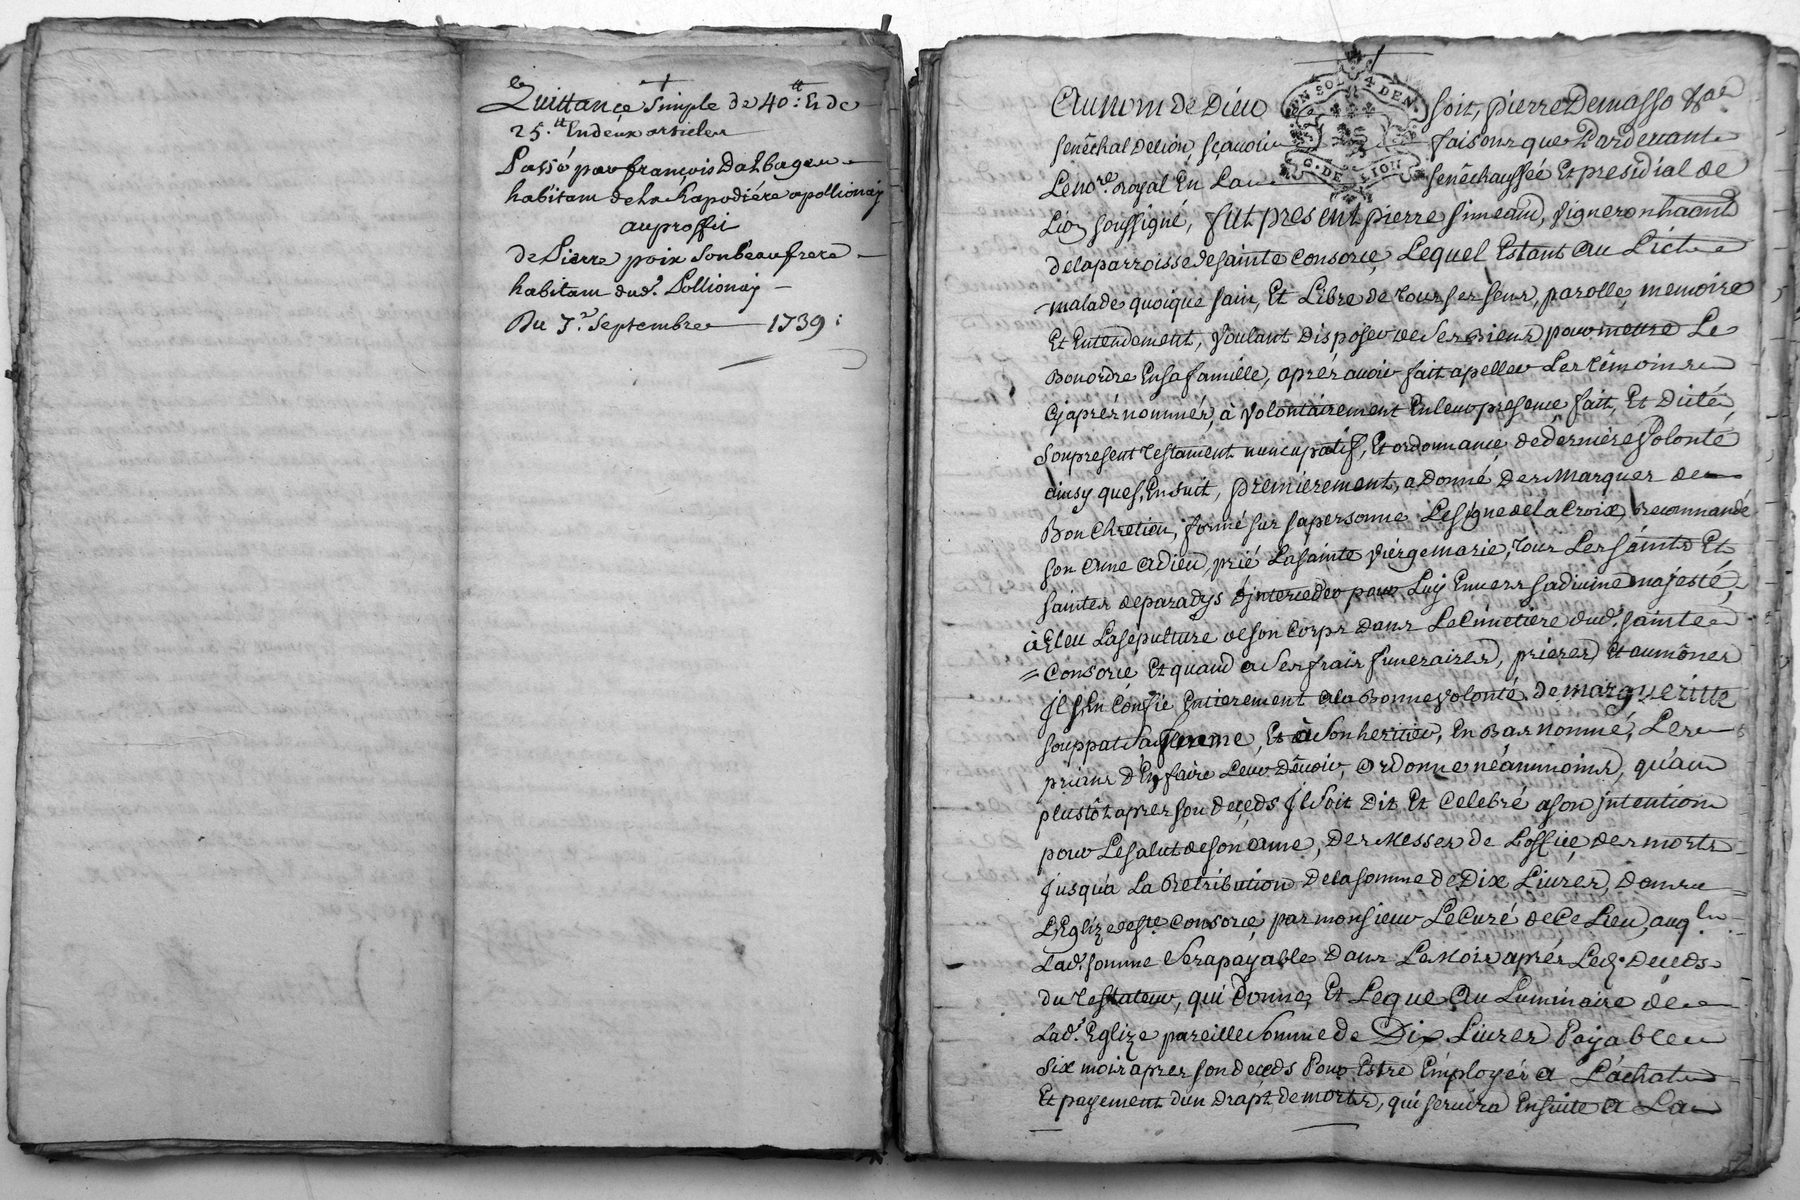 Quittance simple de 40.tt Et de
25.tt En deux articles
Passé par françois Dalbageu
habitant de la Rapodiére a pollionay
au proffit
de Pierre poix son beaufrere
habitant dud.t Pollionay
Du 7.e Septembre 1739:
Au nom de Dieu soit, pierre Demasso
senêchal de Lion sçavoir faisons que Pardevant
Le no.re royal En La senêchaussée Et presidial de
Lion soussigné, fut present pierre simeand, vigneron habitant
de la parroisse de sainte Consorce, Lequel Estant au Licte
malade quoique sain, Et Libre de tous ses sens, parolle, memoire
Et Entendement, voulant Disposer de ses Biens pour mettre Le
Bon ordre En sa famille, aprés avoir fait apeller Les témoins
cy aprés nommés, à volontairement En leur presence fait, Et Dicté
son present testament nuncupatif, Et ordonnance de derniére volonté
ainsy que s'Ensuit, premierement, a Donné Des Marques de
Bon Chretien, formé sur sa personne Le signe de la Croix, recommandé
son ame a Dieu, prié La sainte viérge marie, tous Les saints Et
saintes de paradys d'jnterceder pour Luy Envers sa divine majesté,
à Eleu La sepulture de son Corps Dans Le Cimetiére dud.t sainte
= Consorce Et quand a ses frais funeraires, priéres Et aumônes
jl s'En Confie Entierement a la Bonne volonté de margueritte
souppat sa femme, Et à son heritier, En Bas nommé, Les
priant d'En faire Leur Dévoir, ordonne néanmoins, qu'au
plustôt apres son deceds jl soit Dit Et Celebré a son jntention
pour Le salut de son ame, Des Messes de L'office des morts
jusqu'a La Retribution De la somme de Dix Livres, Dans
L'Eglize de ste Consorce, par monsieur Le Curé de Ce Lieu, auq.l
Lad.t somme sera payable Dans Le Mois aprés Led.t Deceds
du testateur, qui Donne, Et Legue au Luminaire de
Lad.t Eglize pareille somme de Dix Livres Payable
six mois apres son deceds Pour Estre Employés a L'achat
Et payement d'un Drapt de morts, qui servira Ensuite a La
EN SOL 4 DEN.
G. DE LION